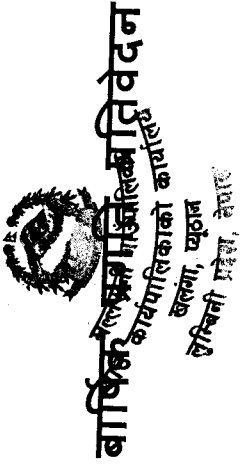 बार्षिक प्रगति प्रतिवेदन
गाउँपालिका
कार्यपालिकाको कार्यालय
खलंगा, प्यूठान
लुम्बिनी प्रदेश, नेपाल